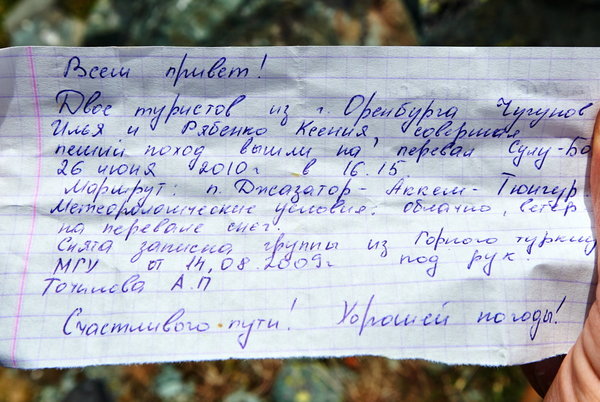 Всем привет!
Двое туристов из г. Оренбурга Чугунов
Илья и Рябенко Ксения совершая
пеший поход вышли на перевал Сулу-Ба
26 июня 2010г в 16.15.
Маршрут: п. Джазатор - Аккем - Тюнгур
Метеорологические условия: облачно, ветер
на перевале снег.
Снята записка группы из Горного турклу
МГУ от 14.08.2009г под рук.
А.П
Счастливого пути! Хорошей погоды!